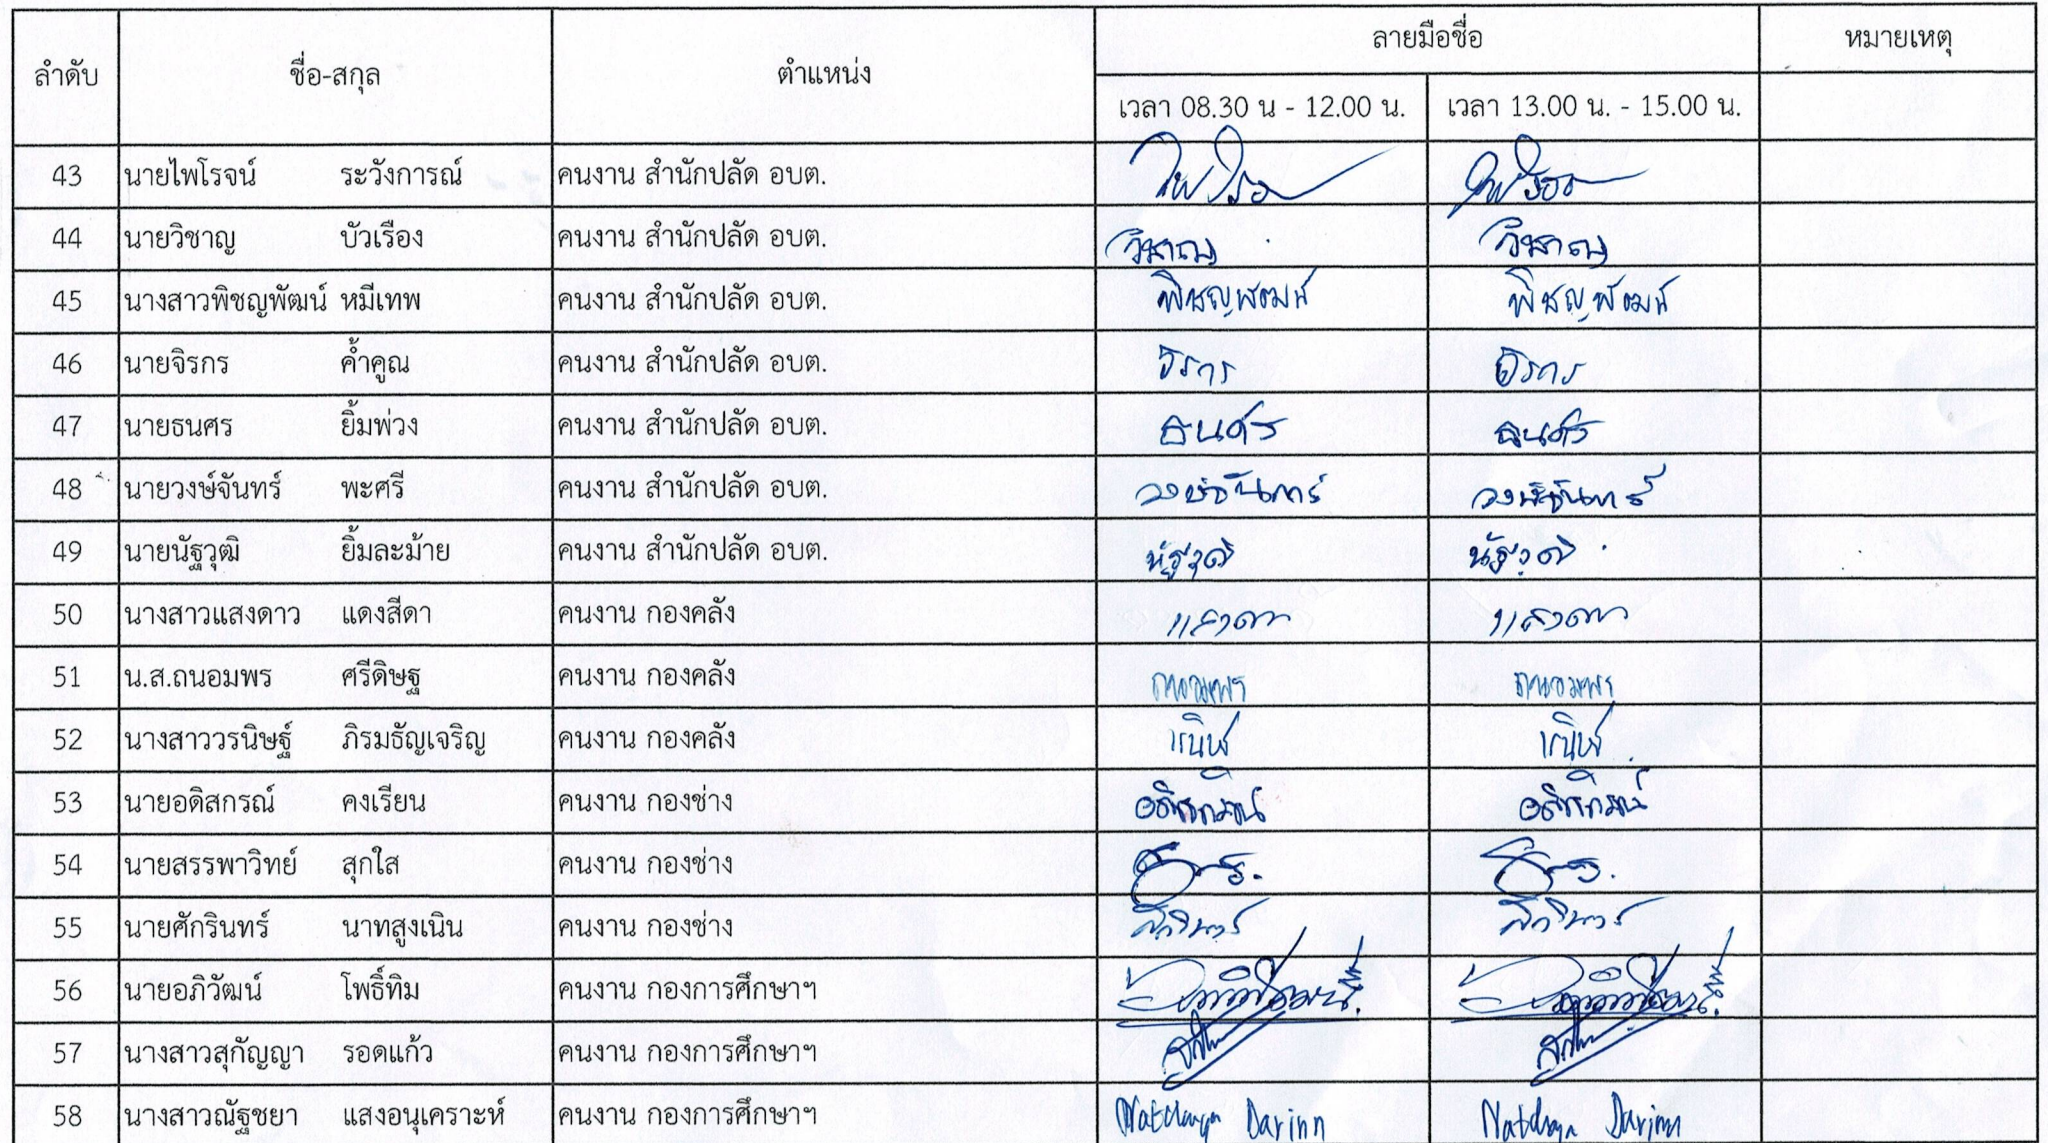 ลำดับ ชื่อ-สกุล ตำแหน่ง ลายมือชื่อ หมายเหตุ
เวลา 08.30 น - 12.00 น. เวลา 13.00 น. - 15.00 น.
43 นายไพโรจน์ ระวังการณ์ คนงาน สำนักปลัด อบต. ไพโรจ ไพโรจ
44 นายวิชาญ บัวเรือง คนงาน สำนักปลัด อบต. วิชาญ วิชาญ
45 นางสาวพิชญพัฒน์ หมีเทพ คนงาน สำนักปลัด อบต. พิชญพัฒน์ พิชญพัฒน์
46 นายจิรกร ค้ำคูณ คนงาน สำนักปลัด อบต. จิรกร จิรกร
47 นายธนศร ยิ้มพ่วง คนงาน สำนักปลัด อบต. ธนศร ธนศร
48 นายวงษ์จันทร์ พะศรี คนงาน สำนักปลัด อบต. วงษ์จันทร์ วงษ์จันทร์
49 นายนัฐวุฒิ ยิ้มละม้าย คนงาน สำนักปลัด อบต. นัฐวุฒิ นัฐวุฒิ
50 นางสาวแสงดาว แดงสีดา คนงาน กองคลัง แสงดาว แสงดาว
51 น.ส.ถนอมพร ศรีดิษฐ คนงาน กองคลัง ถนอมพร ถนอมพร
52 นางสาววรนิษฐ์ ภิรมธัญเจริญ คนงาน กองคลัง
53 นายอดิสกรณ์ คงเรียน คนงาน กองช่าง
54 นายสรรพาวิทย์ สุกใส คนงาน กองช่าง
55 นายศักรินทร์ นาทสูงเนิน คนงาน กองช่าง ศักรินทร์ ศักรินทร์
56 นายอภิวัฒน์ โพธิ์ทิม คนงาน กองการศึกษาฯ
57 นางสาวสุกัญญา รอดแก้ว คนงาน กองการศึกษาฯ
58 นางสาวณัฐชยา แสงอนุเคราะห์ คนงาน กองการศึกษาฯ Natchaya Darinn Natchaya Darinn